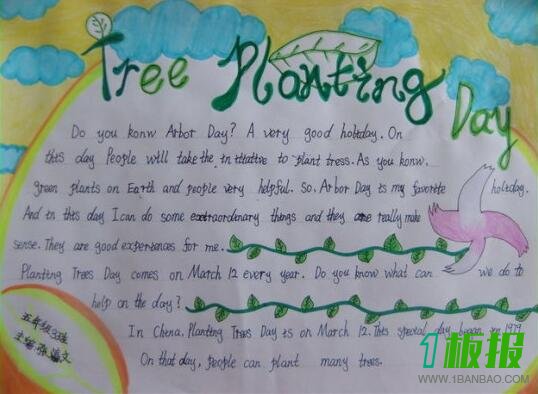 Tree Planting Day
Do you konw Arbor Day? A very good holiday. On
this day People will take the initiative to plant tress. As you konw.
green plants on Earth and people very helpful. So, Arbor Day is my favorite holiday.
And in this day I can do some extraordinary things and they are really make
sense. They are good experiences for me.
Planting Trees Day comes on March 12 every year. Do you know what can we do to
help on the day?
In China. Planting Trees Day is on March 12. This special day began in 1979
On that day, people can plant many trees.
五年级3班
1板报
WWW.1BANBAO.COM